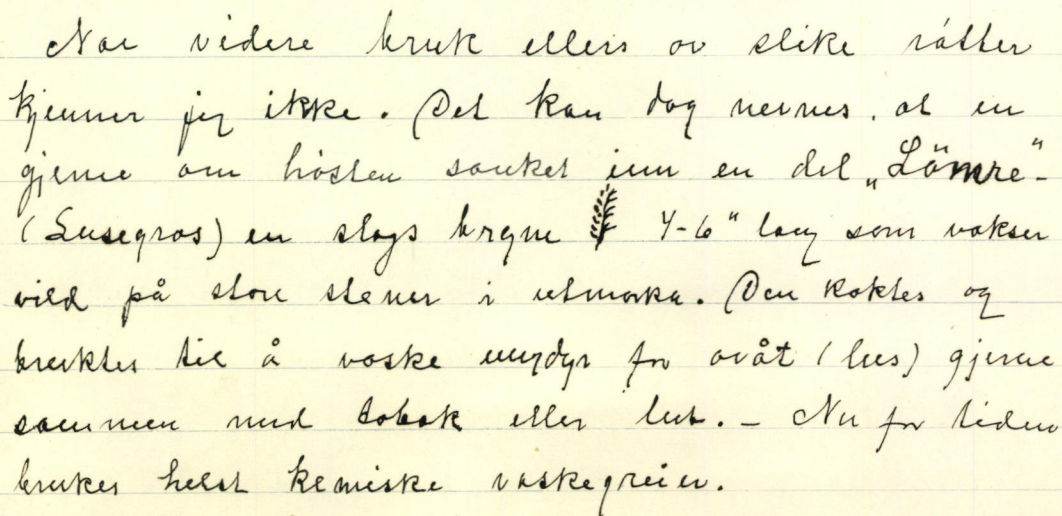 Noe videre bruk ellers av slike råtter
kjenner jeg ikke. Det kan dog nevnes, at en
gjerne om høsten sanket inn en del „Lömre"-
(Lusegras) en slags bregne 4-6" lang som vokser
vild på store stener i utmarka. Den koktes og
bruktes til å vaske ungdyr for ovåt (lus) gjerne
sammen med tobak eller lut. - Nu for tiden
brukes helst kemiske vaskegreier.